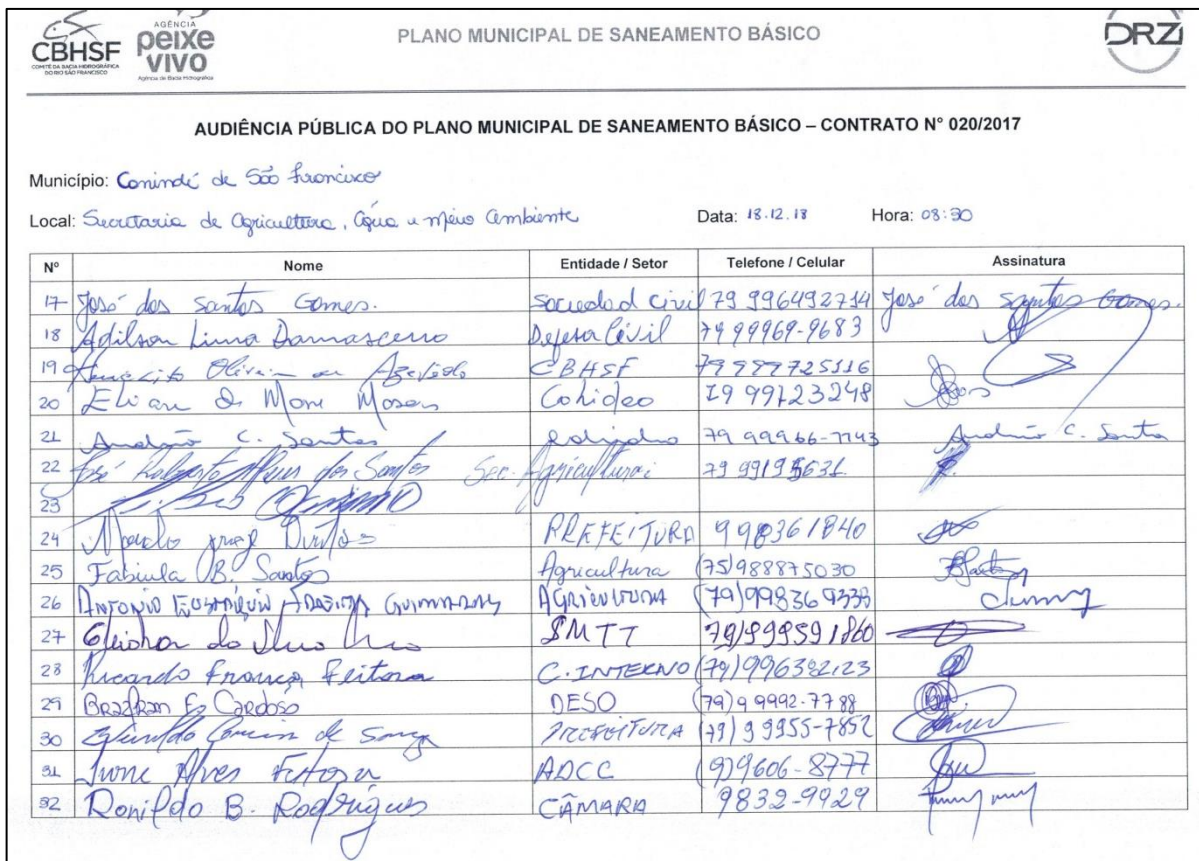 CBHSF
COMITÊ DA BACIA HIDROGRÁFICA
DO RIO SÃO FRANCISCO
AGÊNCIA
peixe
vivo
Agência de Bacia Hidrográfica
PLANO MUNICIPAL DE SANEAMENTO BÁSICO
DRZ
AUDIÊNCIA PÚBLICA DO PLANO MUNICIPAL DE SANEAMENTO BÁSICO – CONTRATO N° 020/2017
Município: Canindé de São Francisco
Local: Secretaria de Agricultura, Água e Meio Ambiente Data: 18.12.18 Hora: 08:30
N° Nome Entidade / Setor Telefone / Celular Assinatura
17 José dos Santos Gomes. sociedad civil 79 996492714 José dos Santos Gomes.
18 Adilson Lima Damasceno Defesa Civil 79 99969-9683
19 Oliveira CBHSF 79999725116
20 79 99123248
21 C. Santos 79 99966-7143 C. Santos
22 José Alves dos Santos Sec. Agricultura
23
24 PREFEITURA 998361840
25 Fabiula B. Santos Agricultura (75)988875030
26 ANTONIO GUIMARAES AGRICULTURA (79)998369333
27 SMTT 79)999591860
28 Ricardo França Feitosa C. INTERNO (79)996382123
29 Cardoso DESO (79)99992-7788
30 de Souza PREFEITURA (79)99955-7852
31 Ivone Alves Feitosa ADCC (9)9606-8777
32 Ronildo B. Rodrigues CÂMARA 9832-9929